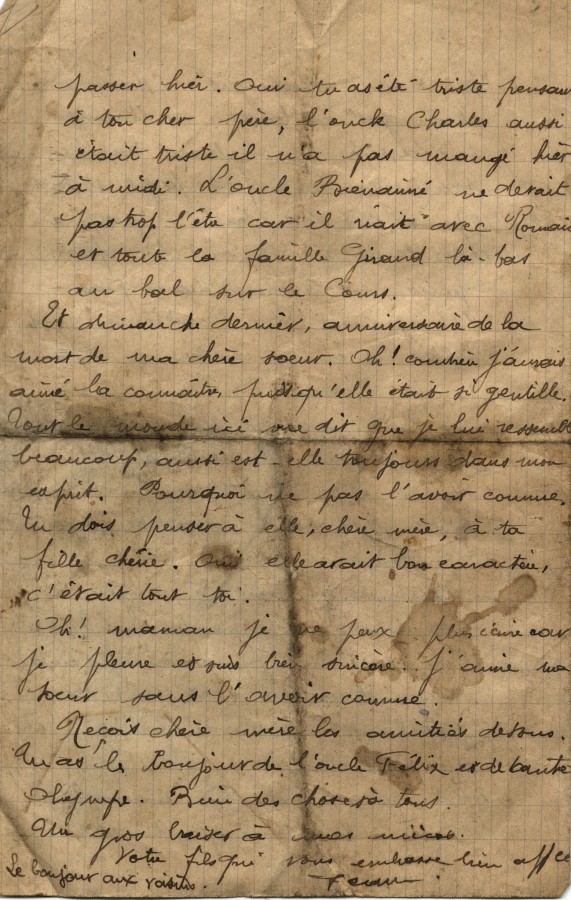 passer hièr. Oui tu as été triste pensant
à ton cher père, l'oncle Charles aussi
était triste il n'a pas mangé hièr
à midi. L'oncle Bienaimé ne devait
pas trop l'être car il riait avec Romain
et toute la famille Giraud là-bas
au bal sur le Cours.
Et dimanche dernièr, anniversaire de la
mort de ma chère soeur. Oh! combien j'aurais
aimé la connaître, puisqu'elle était si gentille.
Tout le monde ici me dit que je lui ressemble
beaucoup, aussi est-elle toujours dans mon
esprit. Pourquoi ne pas l'avoir connue.
Tu dois penser à elle, chère mère, à ta
fille chérie. Oui elle avait bon caractère,
c'était tout toi.
Oh! maman je ne peux plus écrire car
je pleure et suis bien sincère. J'aime ma
soeur sans l'avoir connue.
Reçois chère mère les amitiés de tous.
Tu as le bonjour de l'oncle Félix et de tante
Olympe. Bien des choses à tous.
Un gros baiser à mes nièces.
Votre fils qui vous embrasse bien aff
Le bonjour aux voisins.